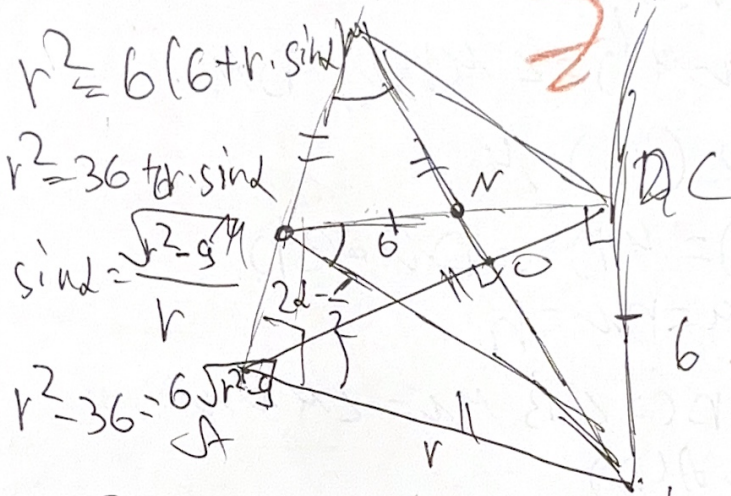 r²=6(6+r·sinα)
r²=36+6r·sinα
sinα=√(r²-9)/r
r²-36=6√(r²-9)
A
N
6
O
C
6
r